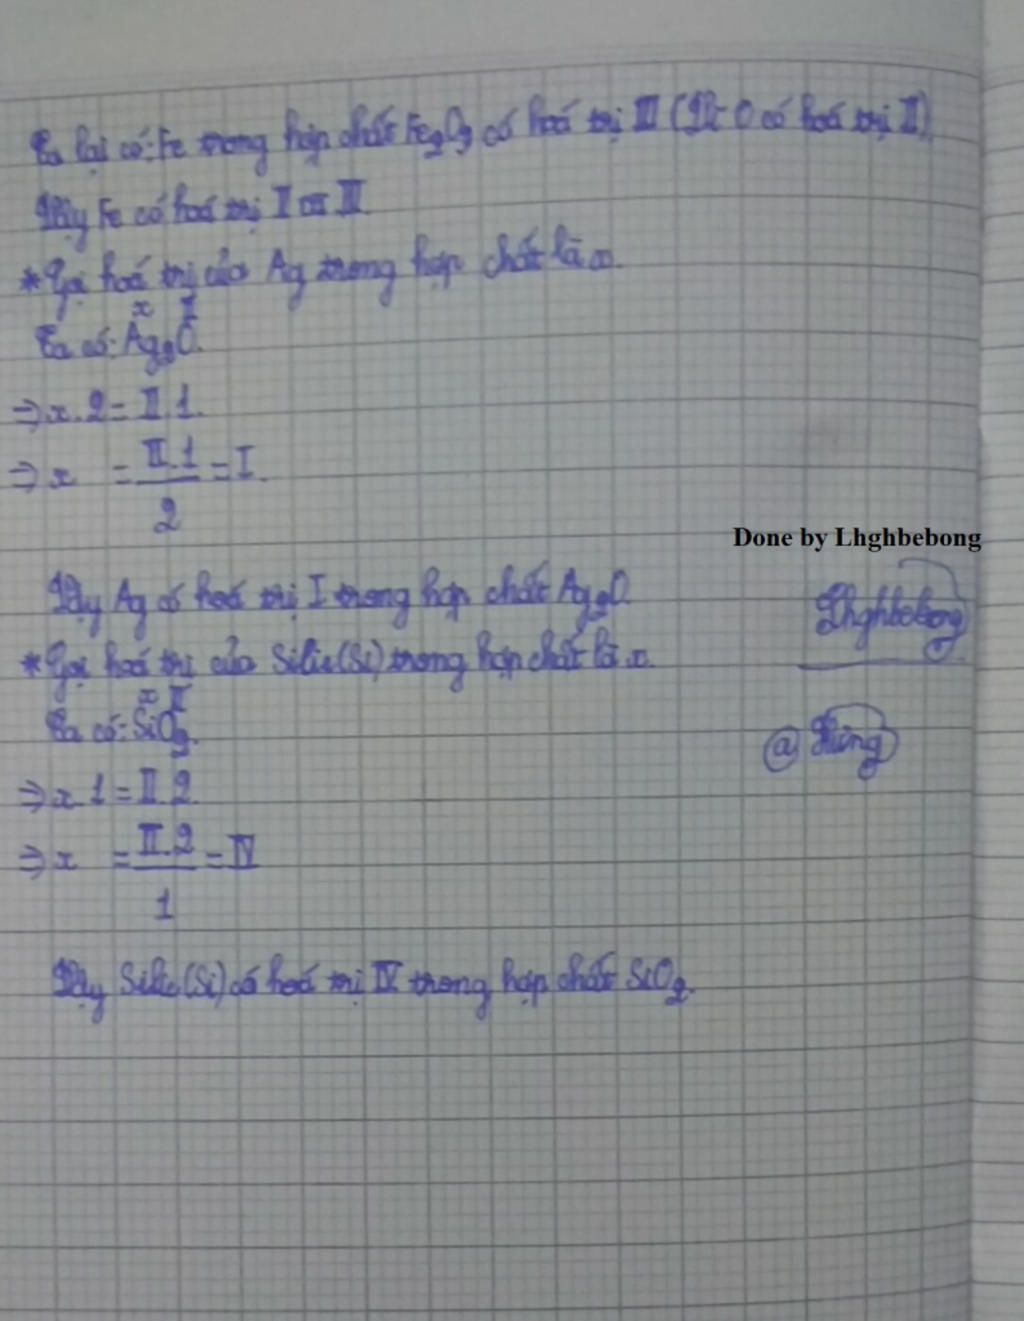 Ta lại có: Fe trong hợp chất Fe₂O₃ có hoá trị III (Vì O có hoá trị II)
Vậy Fe có hoá trị II và III
*Gọi hoá trị của Ag trong hợp chất là x.
x II
Ta có: Ag₂O.
⇒ x . 2 = II . 1.
⇒ x = II . 1 / 2 = I.
Done by Lhghbebong
Vậy Ag có hoá trị I trong hợp chất Ag₂O
Lhghbebong
*Gọi hoá trị của Silic(Si) trong hợp chất là x.
x II
Ta có: SiO₂.
@ Hùng
⇒ x . 1 = II . 2
⇒ x = II . 2 / 1 = IV
Vậy Silic(Si) có hoá trị IV trong hợp chất SiO₂.